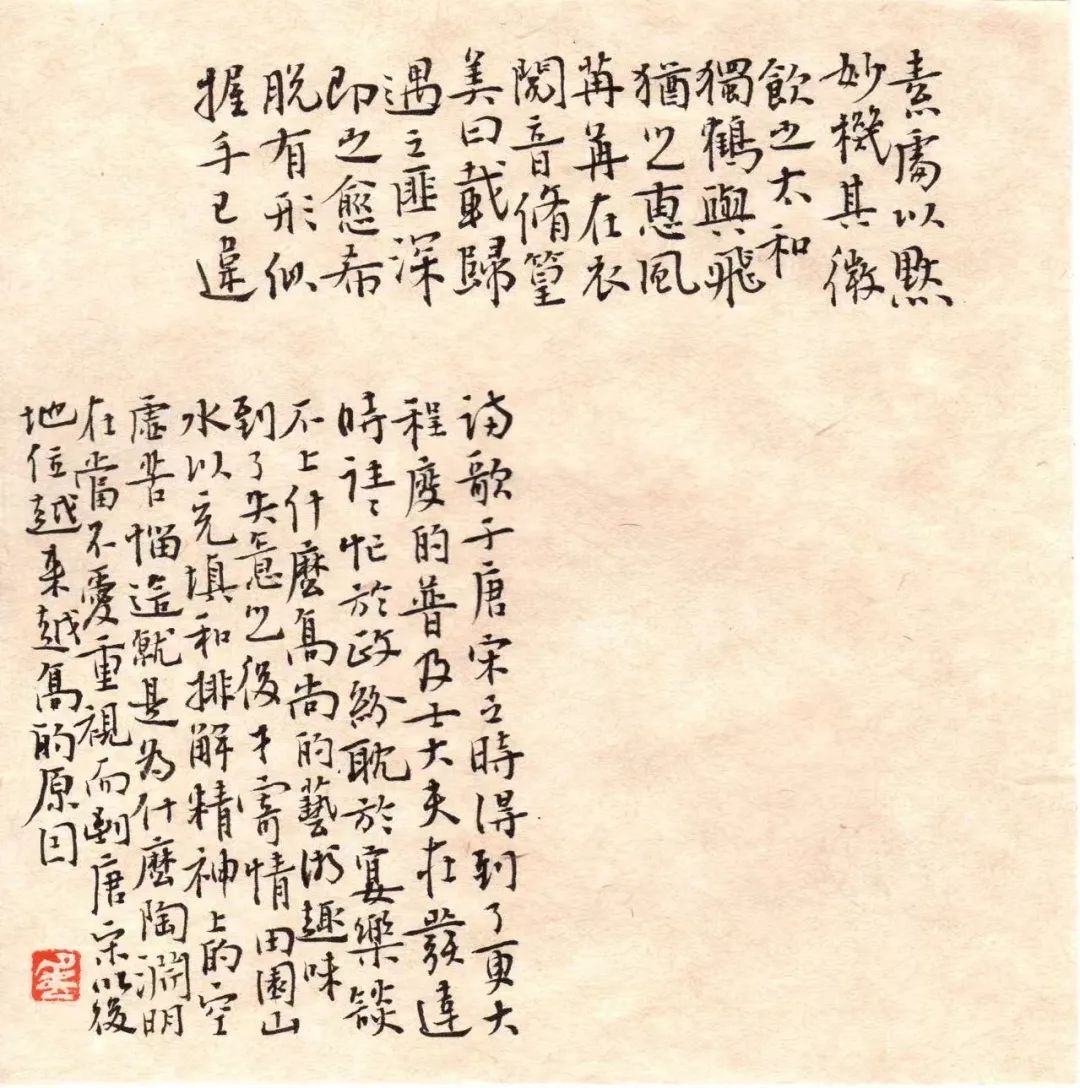 素處以黙
妙機其微
飲之太和
獨鶴與飛
猶之惠風
苒苒在衣
閱音脩篁
美曰載歸
遇之匪深
即之愈希
脫有形似
握手已違
詩歌于唐宋之時得到了更大
程度的普及士大夫在發達
時往〻忙於政紛耽於宴樂談
不上什麼高尚的藝術趣味
到了失意之後才寄情田園山
水以充填和排解精神上的空
虛苦惱這就是為什麼陶淵明
在當不受重視而到唐宋以後
地位越来越高的原因